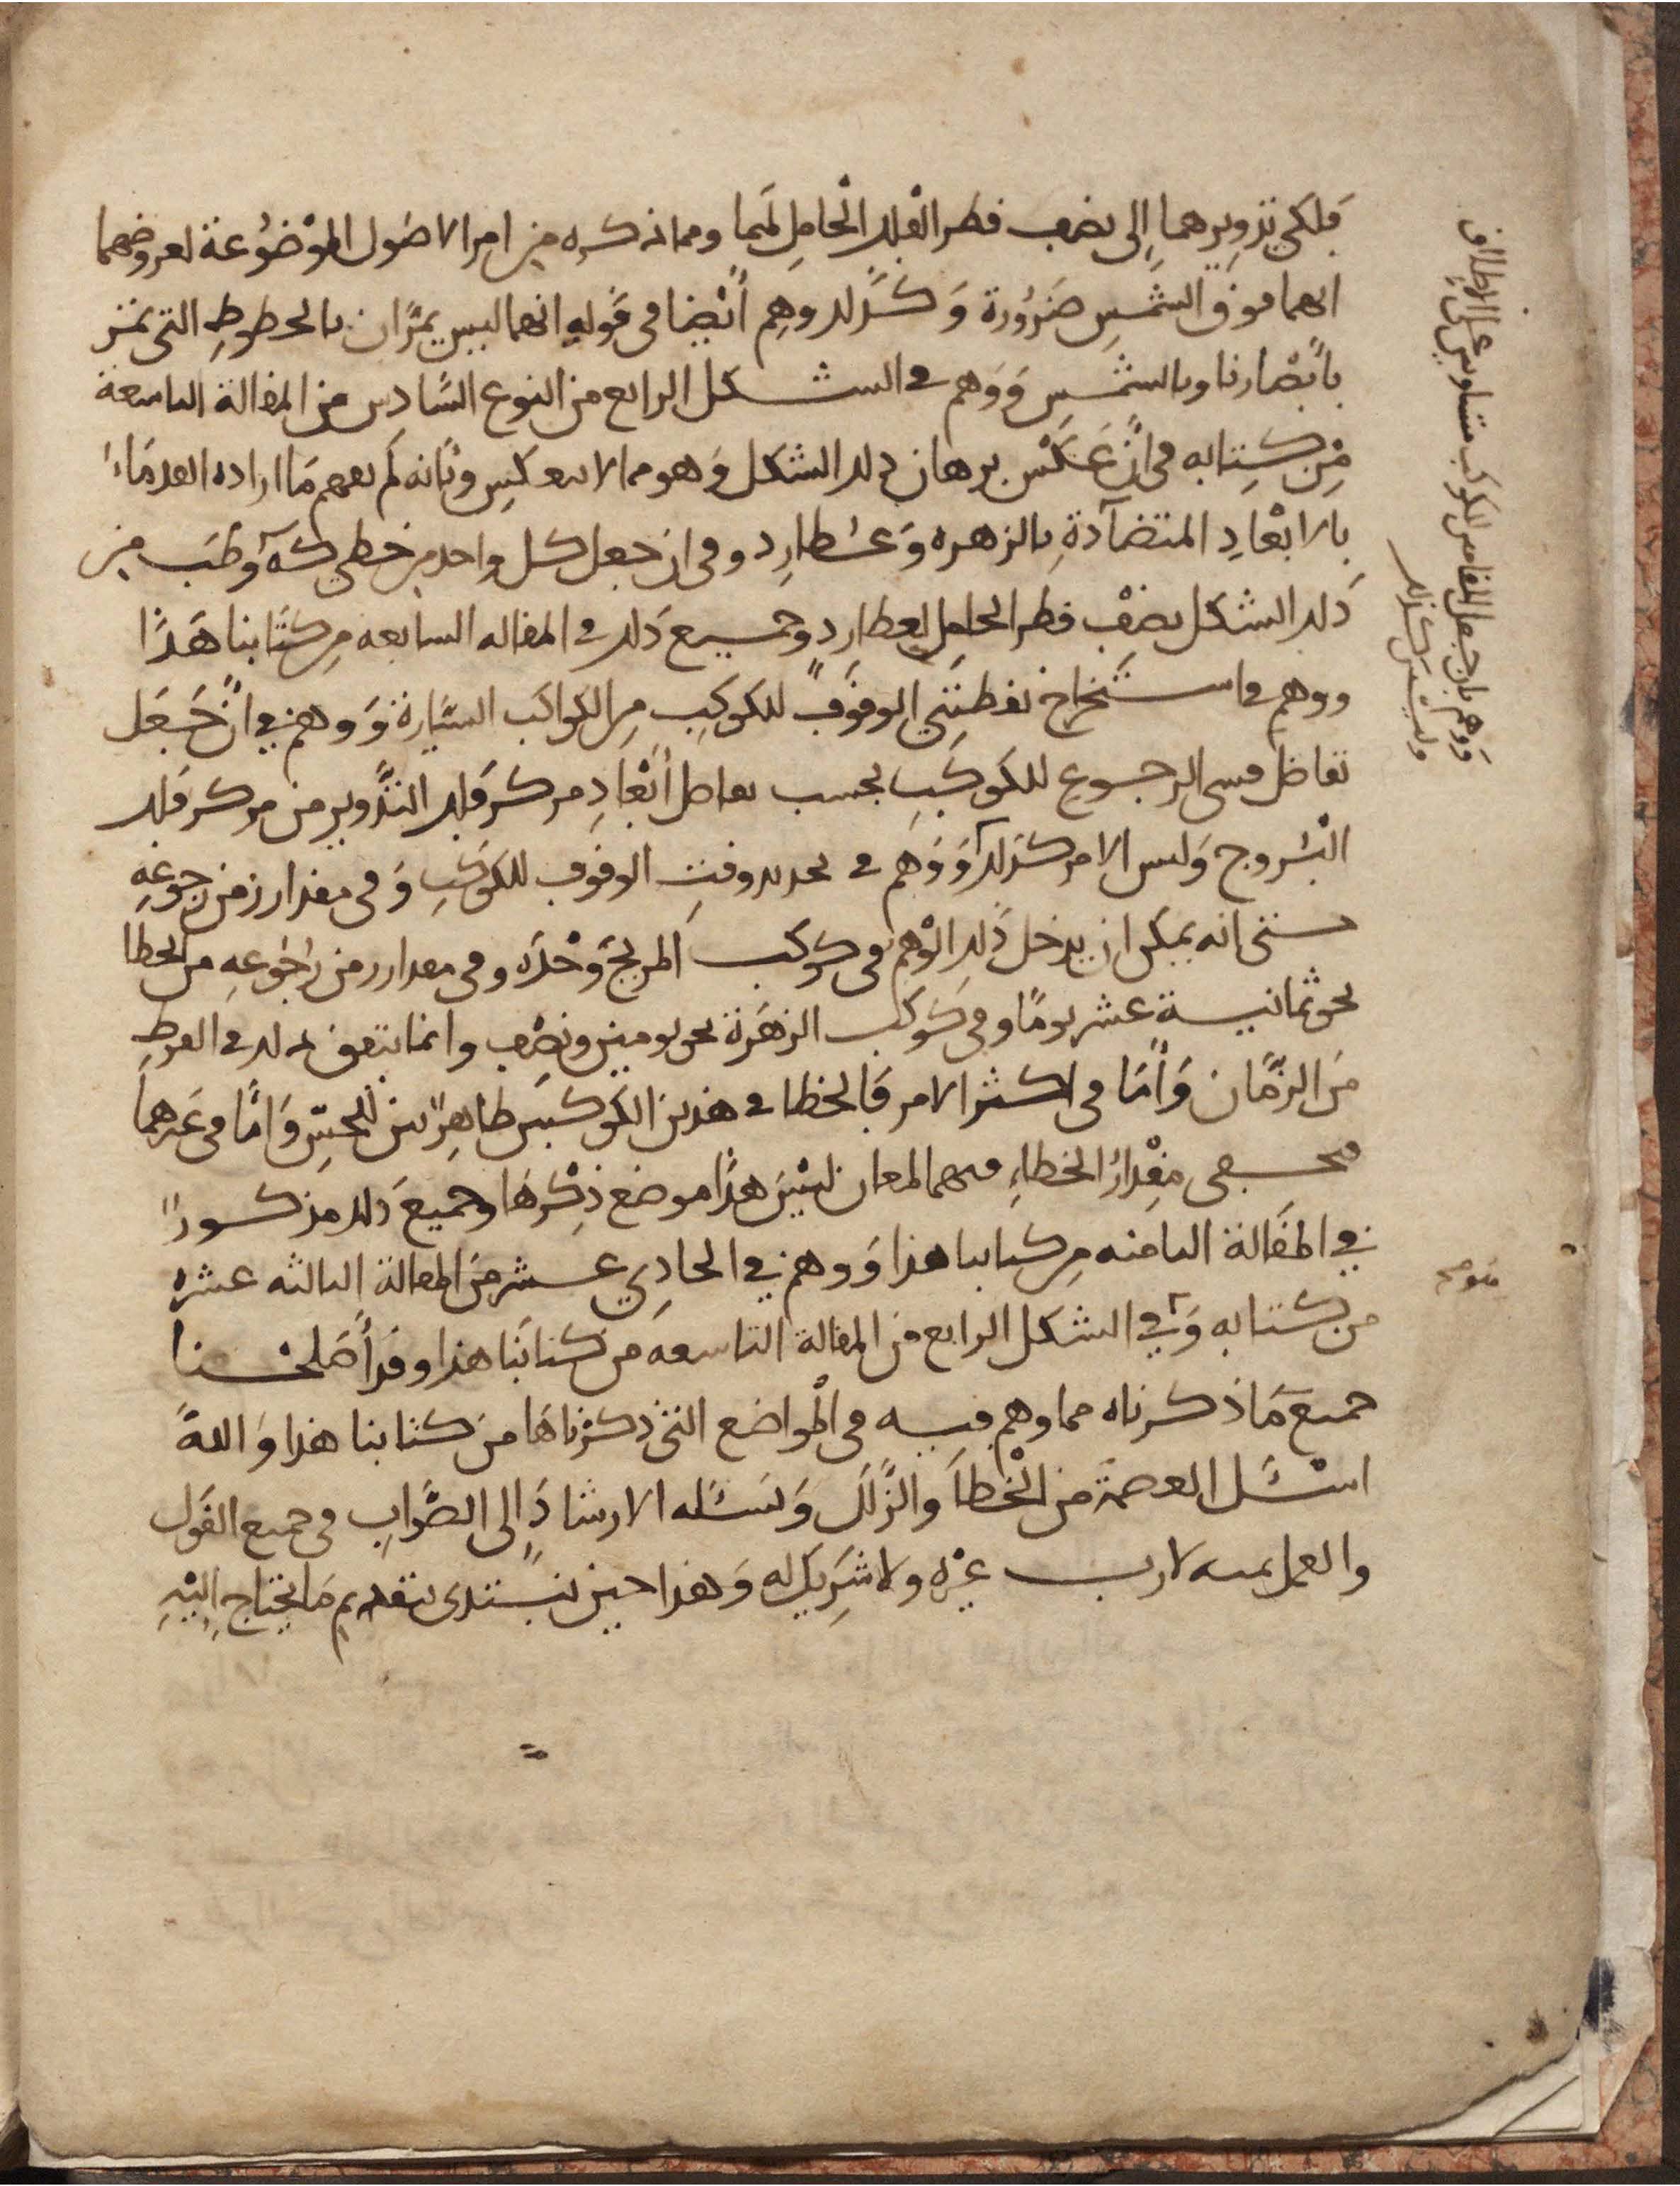 فلكي تدويرهما إلى نصف قطر الفلك الحامل لهما ومما ذكره من امر الاصول الموضوعة لعروضهما
انهما فوق الشمس ضرورة وكذلك وهم أيضا في قوله انهما ليس يمران بالخطوط التي تمر
بأبصارنا وبالشمس ووهم في الشكل الرابع من النوع السادس من المقالة التاسعة
من كتابه في ان عكس برهان ذلك الشكل وهو مما لا ينعكس وبانه لم يفهم ما اراده القدماء
بالابعاد المتضادة بالزهره وعطارد وفي ان جعل كل واحد من خطي كه وطب من
ذلك الشكل نصف قطر الحامل لعطارد وجميع ذلك في المقاله السابعه من كتابنا هذا
ووهم في استخراج نقطتي الوقوف للكوكب من الكواكب السيارة ووهم في ان جعل
تفاضل قسي الرجوع للكوكب بحسب تفاضل أبعاد مركز فلك التدوير من مركز فلك
البروج وليس الامر كذلك ووهم في تحديد وقت الوقوف للكوكب وفي مقدار زمن رجوعه
حتى انه يمكن ان يدخل ذلك الوهم في كوكب المريخ وحده وفي مقدار زمن رجوعه من الخطا
نحو ثمانية عشر يوما وفي كوكب الزهرة نحو يومين ونصف وانما يتفق ذلك في الفرط
من الزمان وأما في اكثر الامر فالخطا في هذين الكوكبين ظاهر بين للحس واما في غيرهما
فيخفى مقدار الخطاء فيهما لمعان ليس هذا موضع ذكرها وجميع ذلك مذكورا
في المقالة الثامنه من كتابنا هذا ووهم في الحادي عشر من المقالة الثالثه عشره
من كتابه وفي الشكل الرابع من المقالة التاسعه من كتابنا هذا وقد أصلحنا
جميع ما ذكرناه مما وهم فيه في المواضع التي ذكرناها من كتابنا هذا والله
اسئل العصمة من الخطأ والزلل ونسئله الارشاد إلى الصواب في جميع القول
والعمل بمنه لا رب غيره ولا شريك له وهذا حين نبتدى بتقديم ما يحتاج إليه
ووهم بان جعل المقامين للكوكب متساويين على الاطلاق
وليس كذلك